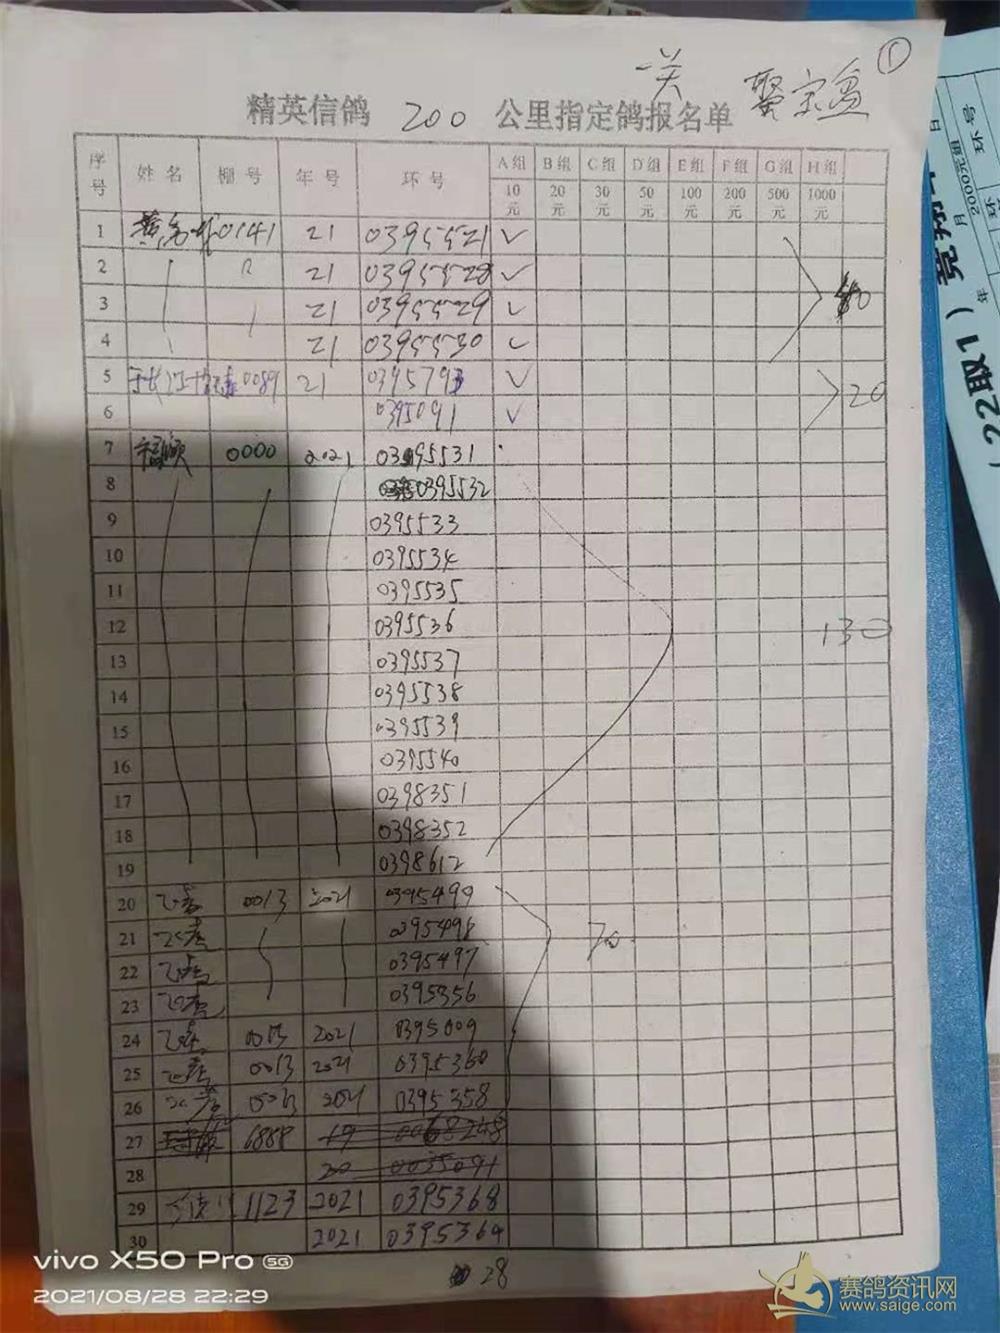 一关 聚宝盆 ①
精英信鸽 200 公里指定鸽报名单
序号 姓名 棚号 年号 环号 A组 B组 C组 D组 E组 F组 G组 H组
10元 20元 30元 50元 100元 200元 500元 1000元
1 0141 21 0395521 ✓
2 21 0395528 ✓
3 21 0395529 ✓
4 21 0395530 ✓
5 0089 21 0395793 ✓ 20
6 0395091 ✓
7 福顺 0000 2021 0395531
8 0395532
9 0395533
10 0395534
11 0395535
12 0395536 130
13 0395537
14 0395538
15 0395539
16 0395540
17 0398351
18 0398352
19 0398612
20 0013 2021 0395499
21 0395498 70
22 0395497
23 0395356
24 0013 2021 0395009
25 0013 2021 0395360
26 0013 2021 0395358
27 6888 19 0068248
28 20 0035091
29 1123 2021 0395368
30 2021 0395364
28
22取1）竞翔
2000元组
环号
年 月 日
vivo X50 Pro 5G
2021/08/28 22:29
赛鸽资讯网
www.saige.com